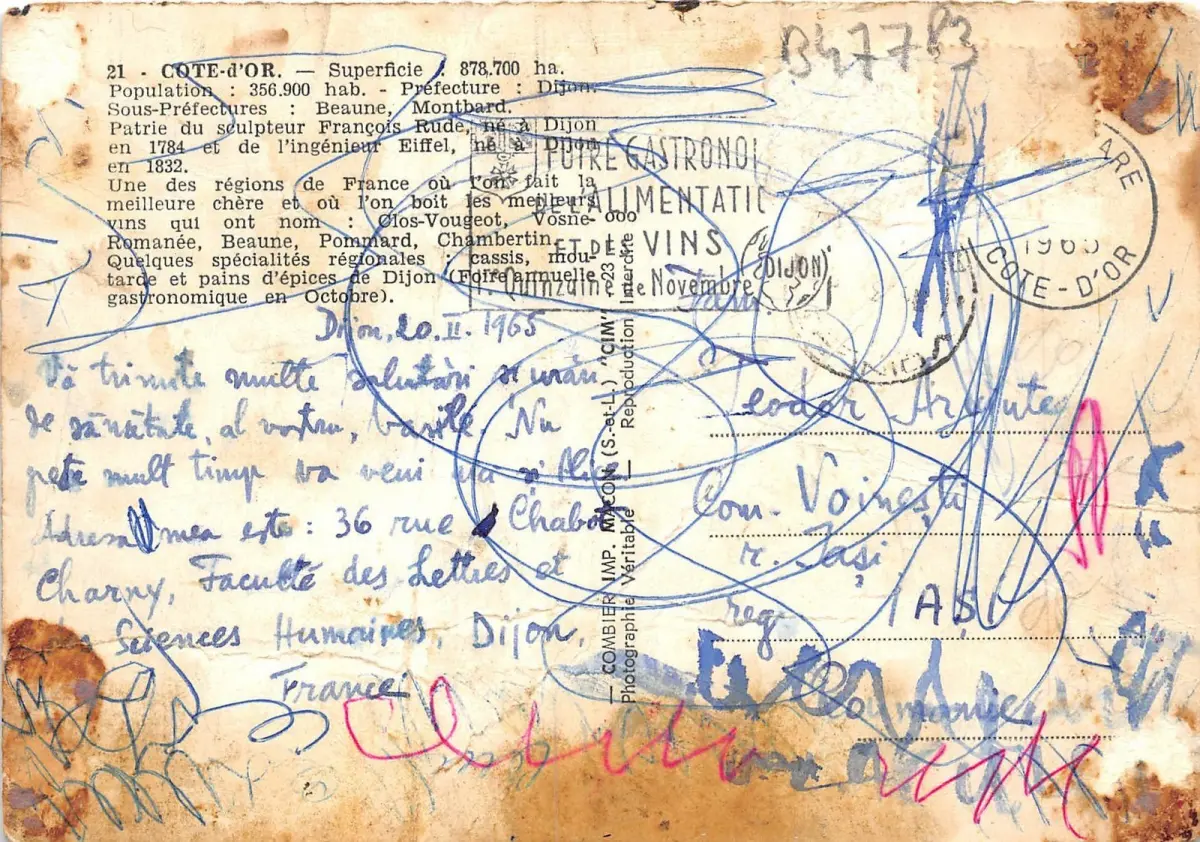 B47783
21 - COTE-d'OR. — Superficie : 878.700 ha.
Population : 356.900 hab. - Préfecture : Dijon.
Sous-Préfectures : Beaune, Montbard.
Patrie du sculpteur François Rude, né à Dijon
en 1784 et de l'ingénieur Eiffel, né à Dijon
en 1832.
Une des régions de France où l'on fait la
meilleure chère et où l'on boit les meilleurs
vins qui ont nom : Clos-Vougeot, Vosne-
Romanée, Beaune, Pommard, Chambertin.
Quelques spécialités régionales : cassis, mou-
tarde et pains d'épices de Dijon (Foire annuelle
gastronomique en Octobre).
FOIRE GASTRONO
ALIMENTATI
ET DES VINS
Quinzaine de Novembre
DIJON
GARE
1965
COTE-D'OR
DIJON
Dijon, 20.II.1965
Vă trimite multe salutări și urări
de sănătate, al vostru, Vasile. Nu
peste mult timp va veni și
Adresa mea este: 36 rue Chabot
Charny, Faculté des Lettres et
des Sciences Humaines, Dijon,
France
— COMBIER IMP. MACON (S.-et-L.) "CIM"
Photographie Véritable — Reproduction Interdite
Fam.
Teodor
Com. Voinești
r. Iași
reg. IAȘI
Roumanie